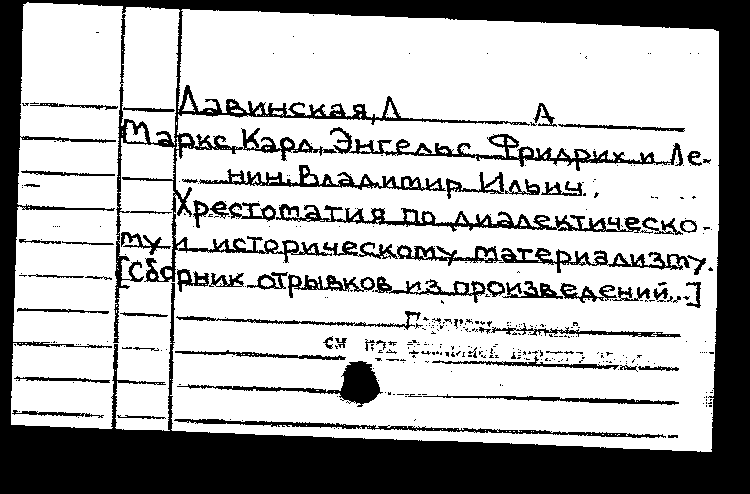 Лавинская, Л А
Маркс, Карл, Энгельс, Фридрих и Ле-
нин, Владимир Ильич.
Хрестоматия по диалектическо-
му и историческому материализму.
[Сборник отрывков из произведений...]
см под первого